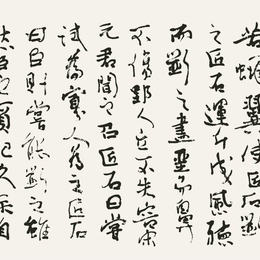 若蠅翼使匠石斲
之匠石運斤成風聽
而斲之盡堊而鼻
不傷郢人立不失容宋
元君聞之召匠石曰嘗
試為寡人為之匠石
曰臣則嘗能斲之雖
然臣之質死久矣自